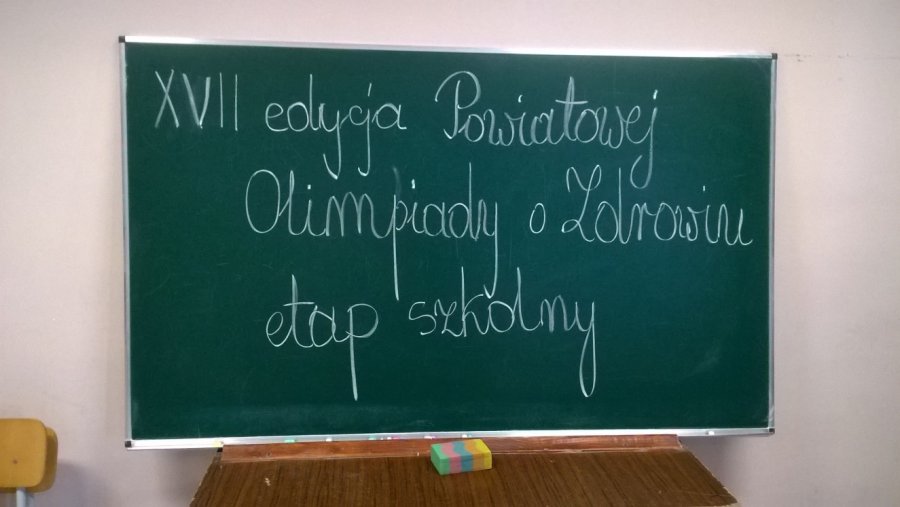 XVII edycja Powiatowej
Olimpiady o Zdrowiu
etap szkolny